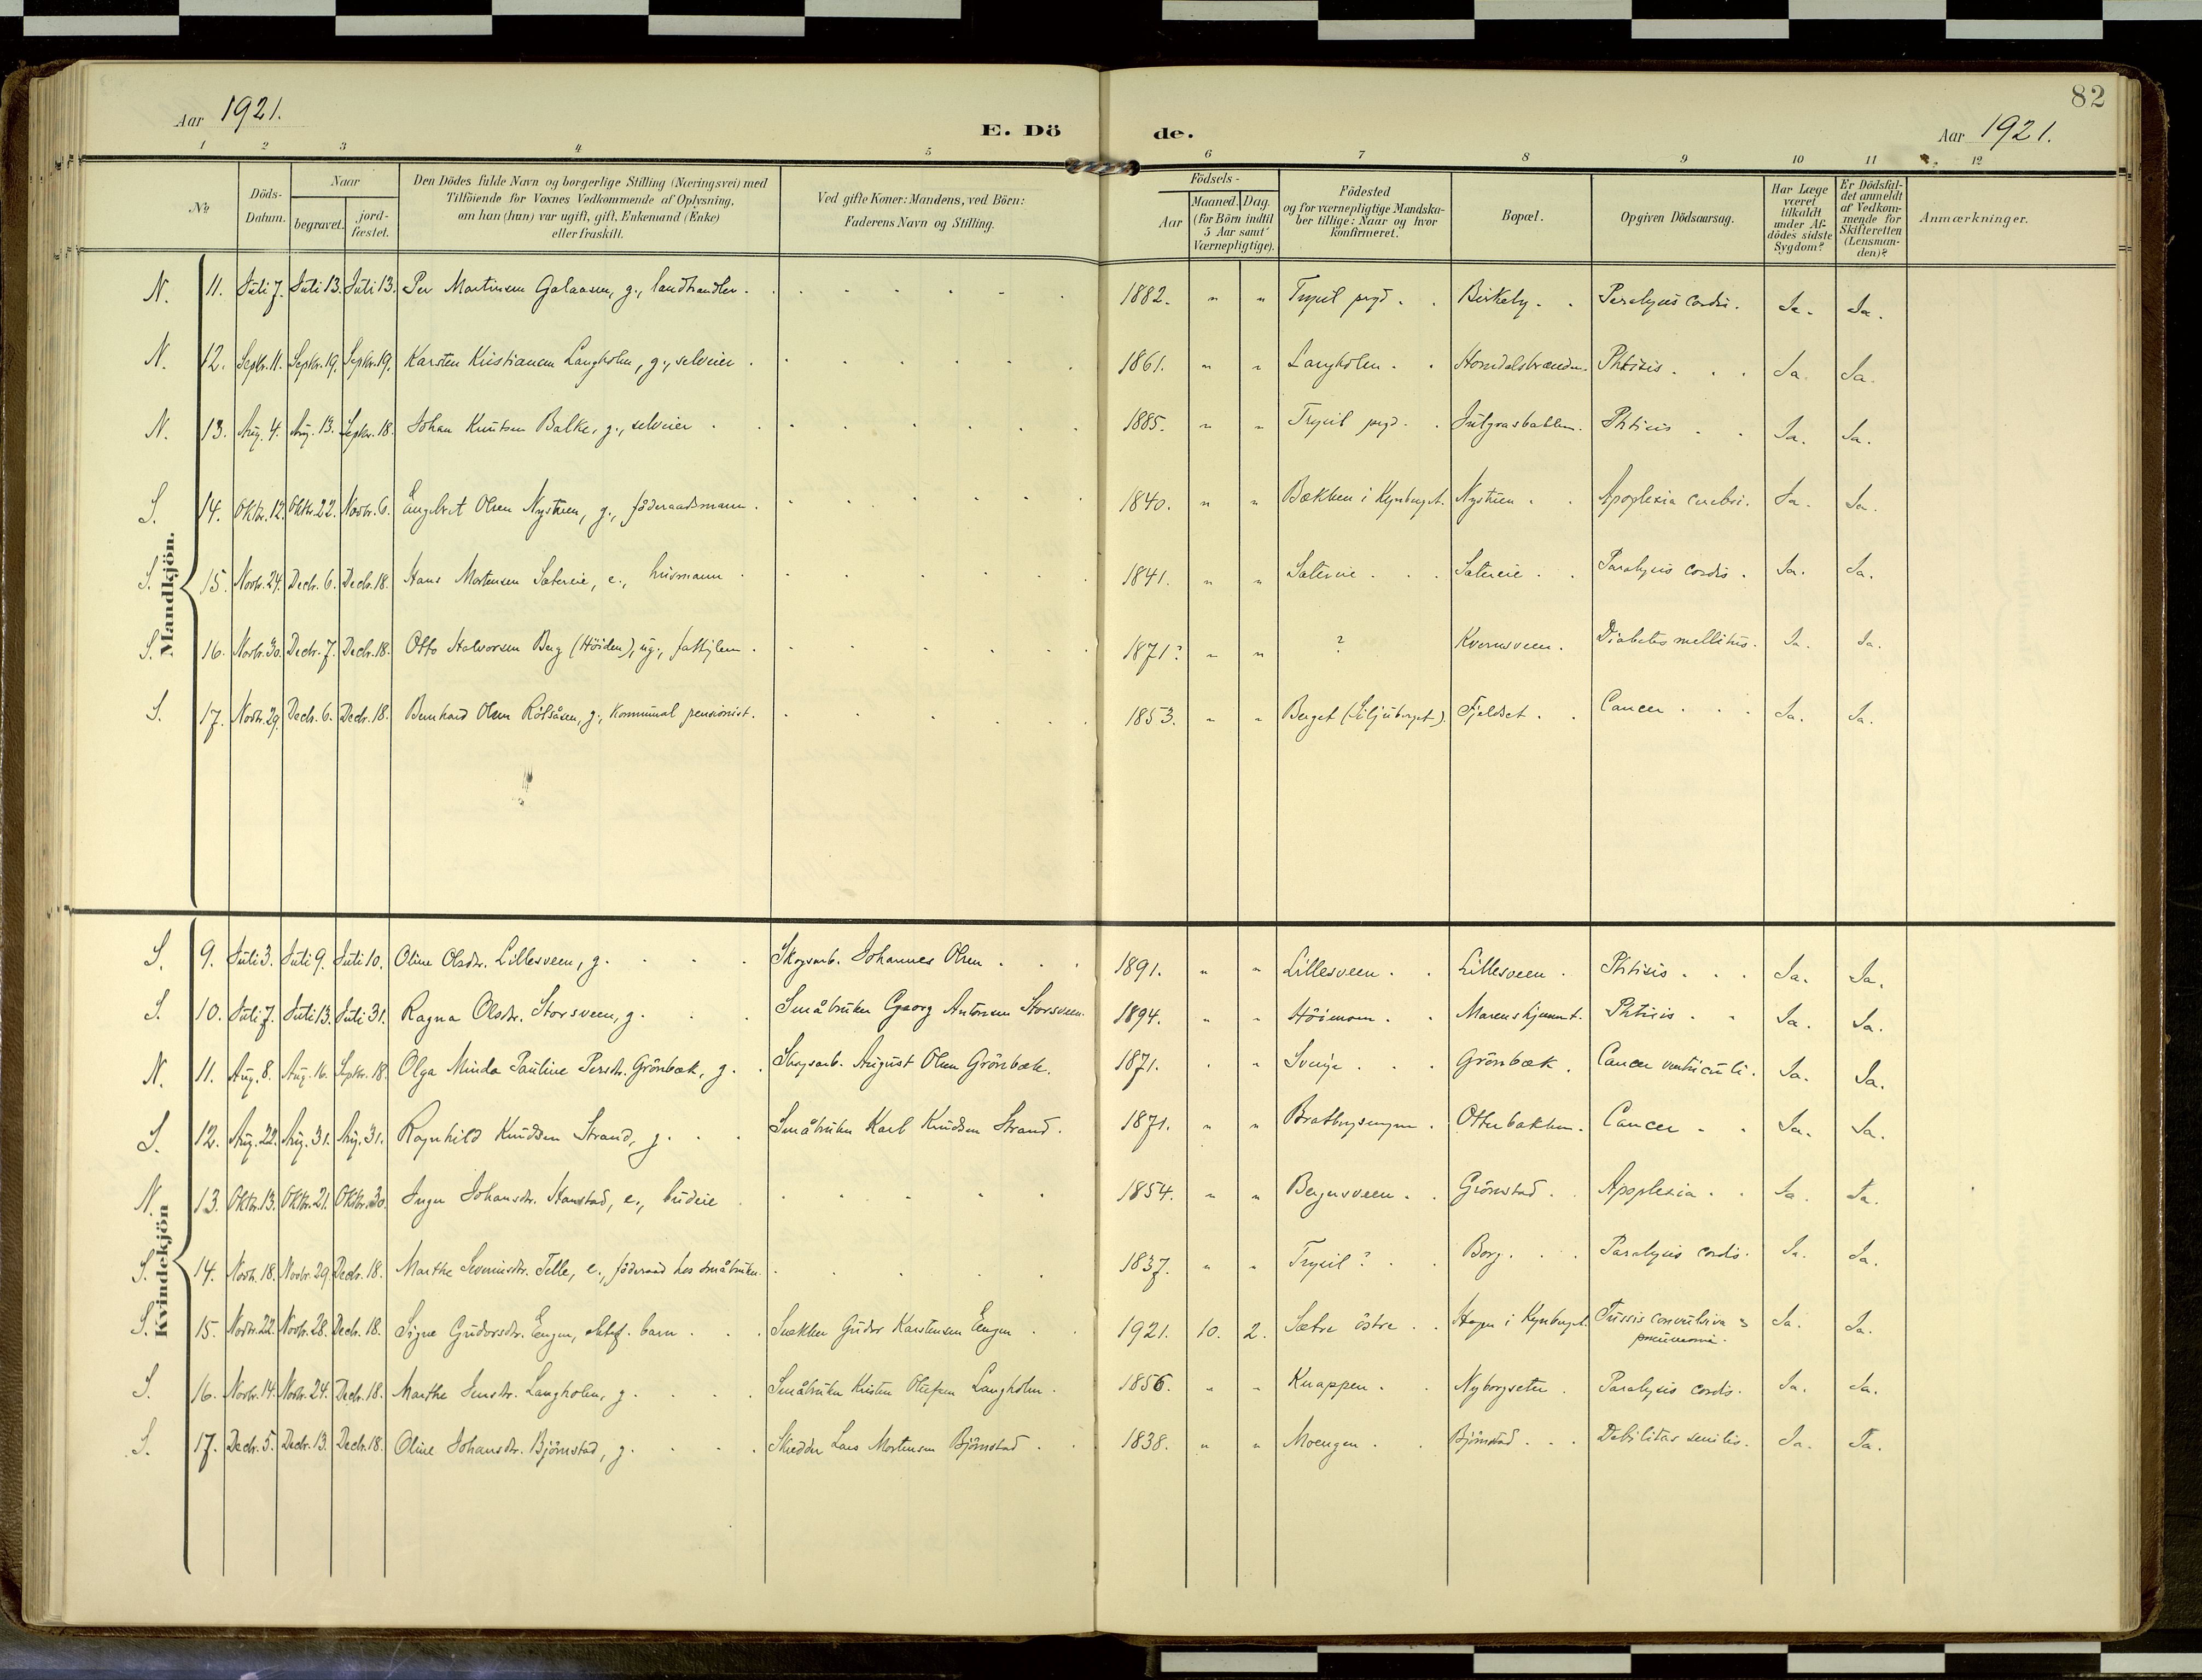 82
Aar 1921.
E. Dö de.
Aar 1921.
1 2 3 4 5 6 7 8 9 10 11 12
No
Döds-Datum.
Naar
begravet.
jord-fæstet.
Den Dödes fulde Navn og borgerlige Stilling (Næringsvei) med
Tilföiende for Voxnes Vedkommende af Oplysning,
om han (hun) var ugift, gift, Enkemand (Enke)
eller fraskilt.
Ved gifte Koner: Mandens, ved Börn:
Faderens Navn og Stilling.
Födsels-
Aar
Maaned. Dag.
(for Börn indtil
5 Aar samt
Værnepligtige).
Födested
og for værnepligtige Mandska-
ber tillige: Naar og hvor
konfirmeret.
Bopæl.
Opgiven Dödsaarsag.
Har Læge
været
tilkaldt
under Af-
dödes sidste
Sygdom?
Er Dödsfal-
det anmeldt
af Vedkom-
mende for
Skifteretten
(Lensman-
den)?
Anmærkninger.
Mandkjön.
N. 11. Juli 7. Juli 13. Juli 13. Per Martinsen Galaasen, g., landhandler. 1882. " " Trysil prgd. Birkeby. Paralysis cordis. Ja. Ja.
N. 12. Septr. 11. Septr. 19. Septr. 19. Karsten Kristiansen Langholm, g., selveier. 1861. " " Langholm. Phtisis. Ja. Ja.
N. 13. Aug. 4. Aug. 13. Septr. 18. Johan Knutsen Balke, g., selveier. 1885. " " Trysil prgd. Julgrasbakken. Phtisis. Ja. Ja.
S. 14. Oktbr. 12. Oktbr. 22. Novbr. 6. Engebret Olsen Nystuen, g., föderaadsmann. 1840. " " Bækken i Kynberget. Nystuen. Apoplexia cerebri. Ja. Ja.
S. 15. Novbr. 24. Decbr. 6. Decbr. 18. Hans Mortensen Sætereie, e., husmann. 1841. " " Sætereie. Sætereie. Paralysis cordis. Ja. Ja.
S. 16. Novbr. 30. Decbr. 7. Decbr. 18. Otto Halvorsen Berg (Höiden), ug., fattiglem. 1871? " " ? Kvernsveen. Diabetes mellitus. Ja. Ja.
S. 17. Novbr. 29. Decbr. 6. Decbr. 18. Bernhard Olsen Rölsåsen, g., kommunal pensionist. 1853. " " Berget (Siljuberget). Fjeldset. Cancer. Ja. Ja.
Kvindekjön
S. 9. Juli 3. Juli 9. Juli 10. Oline Olsdtr. Lillesveen, g. Skogsarb. Johannes Olsen. 1891. " " Lillesveen. Lillesveen. Phtisis. Ja. Ja.
S. 10. Juli 7. Juli 13. Juli 31. Ragna Olsdtr. Storsveen, g. Småbruker Georg Antonsen Storsveen. 1894. " " Höimoen. Phtisis. Ja. Ja.
N. 11. Aug. 8. Aug. 16. Septr. 18. Olga Minda Pauline Persdtr. Grönbæk, g. Skogsarb. August Olsen Grönbæk. 1871. " " Sverige. Grönbæk. Cancer ventriculi. Ja. Ja.
S. 12. Aug. 22. Aug. 31. Aug. 31. Ragnhild Knudsen Strand, g. Småbruker Karl Knudsen Strand. 1871. " " Otterbakken. Cancer. Ja. Ja.
N. 13. Oktbr. 13. Oktbr. 21. Oktbr. 30. Inger Johansdtr. Hanstad, e., budeie. 1854. " " Bergersveen. Grönstad. Apoplexia. Ja. Ja.
S. 14. Novbr. 18. Novbr. 29. Decbr. 18. Marthe Severinsdtr. Telle, e., föderaad hos småbruker. 1837. " " Trysil? Borg. Paralysis cordis. Ja. Ja.
S. 15. Novbr. 22. Novbr. 28. Decbr. 18. Signe Gudorsdtr. Engen, ektef. barn. Snekker Gudor Karstensen Engen. 1921. 10. 2. Sætre östre. Hagen i Kynberget. Tussis convulsiva &
pneumoni.
Ja. Ja.
S. 16. Novbr. 14. Novbr. 24. Decbr. 18. Marthe Jensdtr. Langholm, g. Småbruker Kristen Olufsen Langholm. 1856. " " Knappen. Nyborgseter. Paralysis cordis. Ja. Ja.
S. 17. Decbr. 5. Decbr. 13. Decbr. 18. Oline Johansdtr. Björnstad, g. Skredder Lars Mortensen Björnstad. 1838. " " Moengen. Björnstad. Debilitas senilis. Ja. Ja.